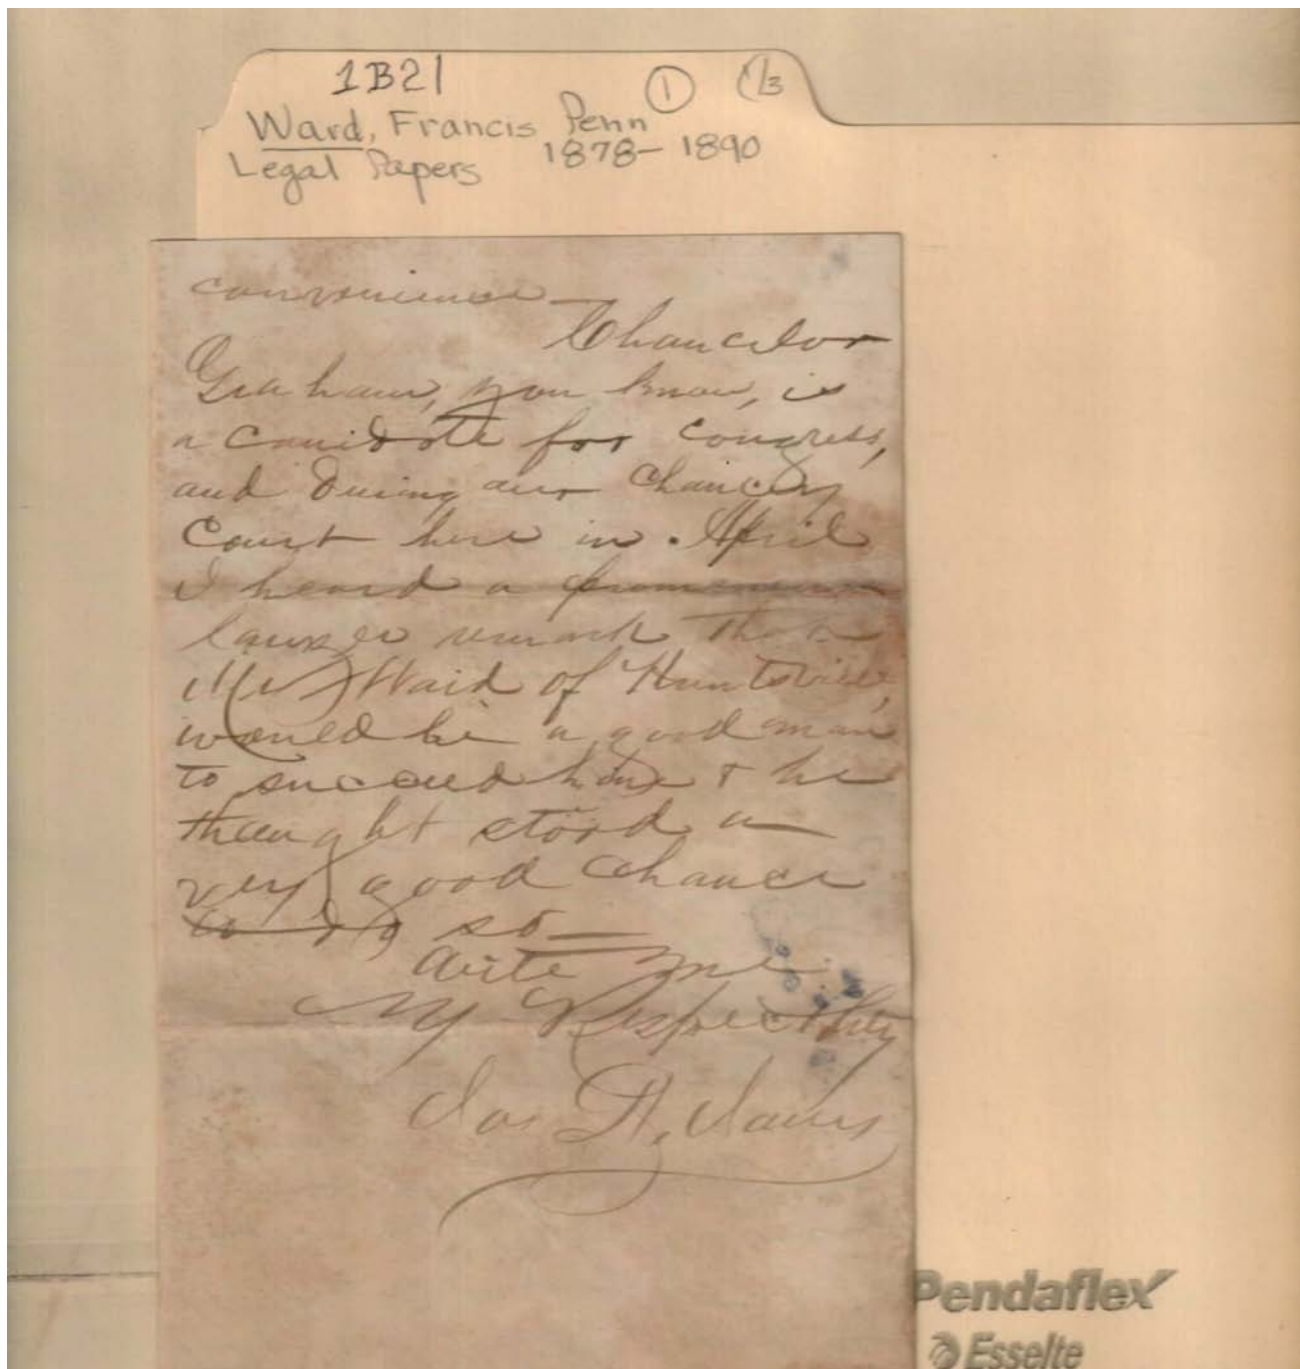 1B21
① 1/3
Ward, Francis Penn
Legal Papers 1878-1890
convenience —
Chancelor
Graham, you know, is
a canidate for congress,
and During our Chancery
Court here in April
I heard a
lawyer remark that
Mr Ward of Huntsville,
would be a good man
to succeed him & he
thought stood a
very good chance
to do so —
write me
Respectfully
Jas H.
Pendaflex
Esselte